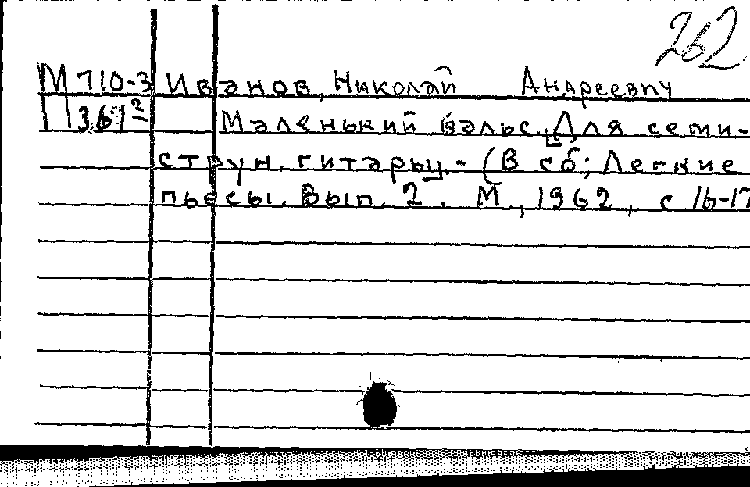 262
М 710-3 Иванов, Николай Андреевич
П 361² Маленький вальс. Для семи-
струн. гитары. - (В сб.: Легкие
пьесы. Вып. 2. М., 1962, с 16-17